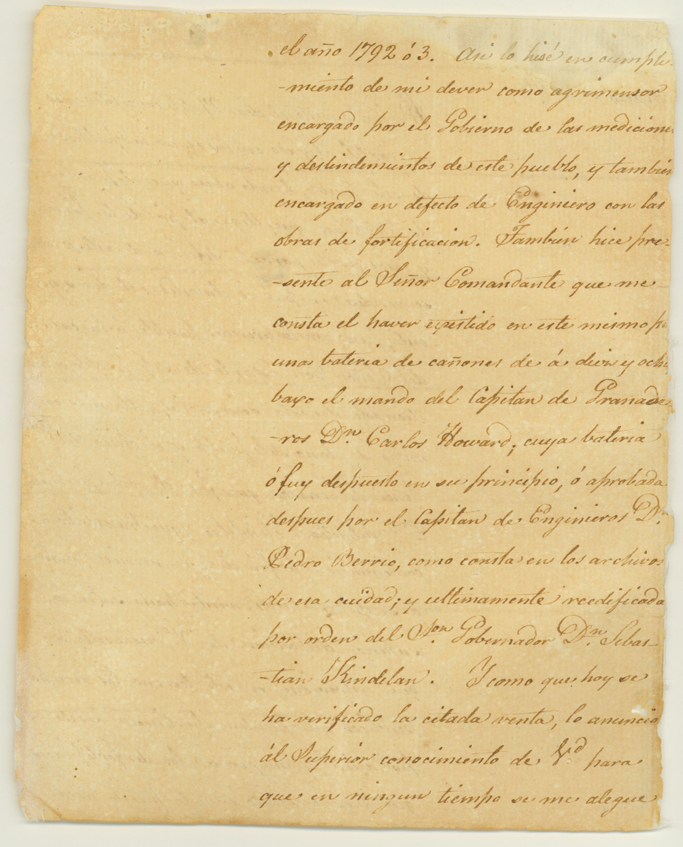 el año 1792 ó 3. Asi lo hisé en cumpli-
-miento de mi dever como agrimensor
encargado por el Gobierno de las medicione
y deslindemientos de este pueblo, y tambien
encargado en defecto de Enginiero con las
obras de fortificacion. Tambien hice pre-
-sente al Señor Comandante que me
consta el haver existido en este mismo
una bateria de cañones de á diez y och
baxo el mando del Capitan de Granade-
-ros Dn. Carlos Howard, cuya bateria
ó fuy despuesto en su principio, ó aprobada
despues por el Capitan de Enginieros Dn
Pedro Berrio, como consta en los archivos
de esa cuidad; y ultimamente reedificada
por orden del Sor. Gobernador Dn. Sebas-
-tian Kindelan. Y como que hoy se
ha verificado la citada venta, lo anuncio
ál Superior conocimiento de Vd para
que en ningun tiempo se me alegue